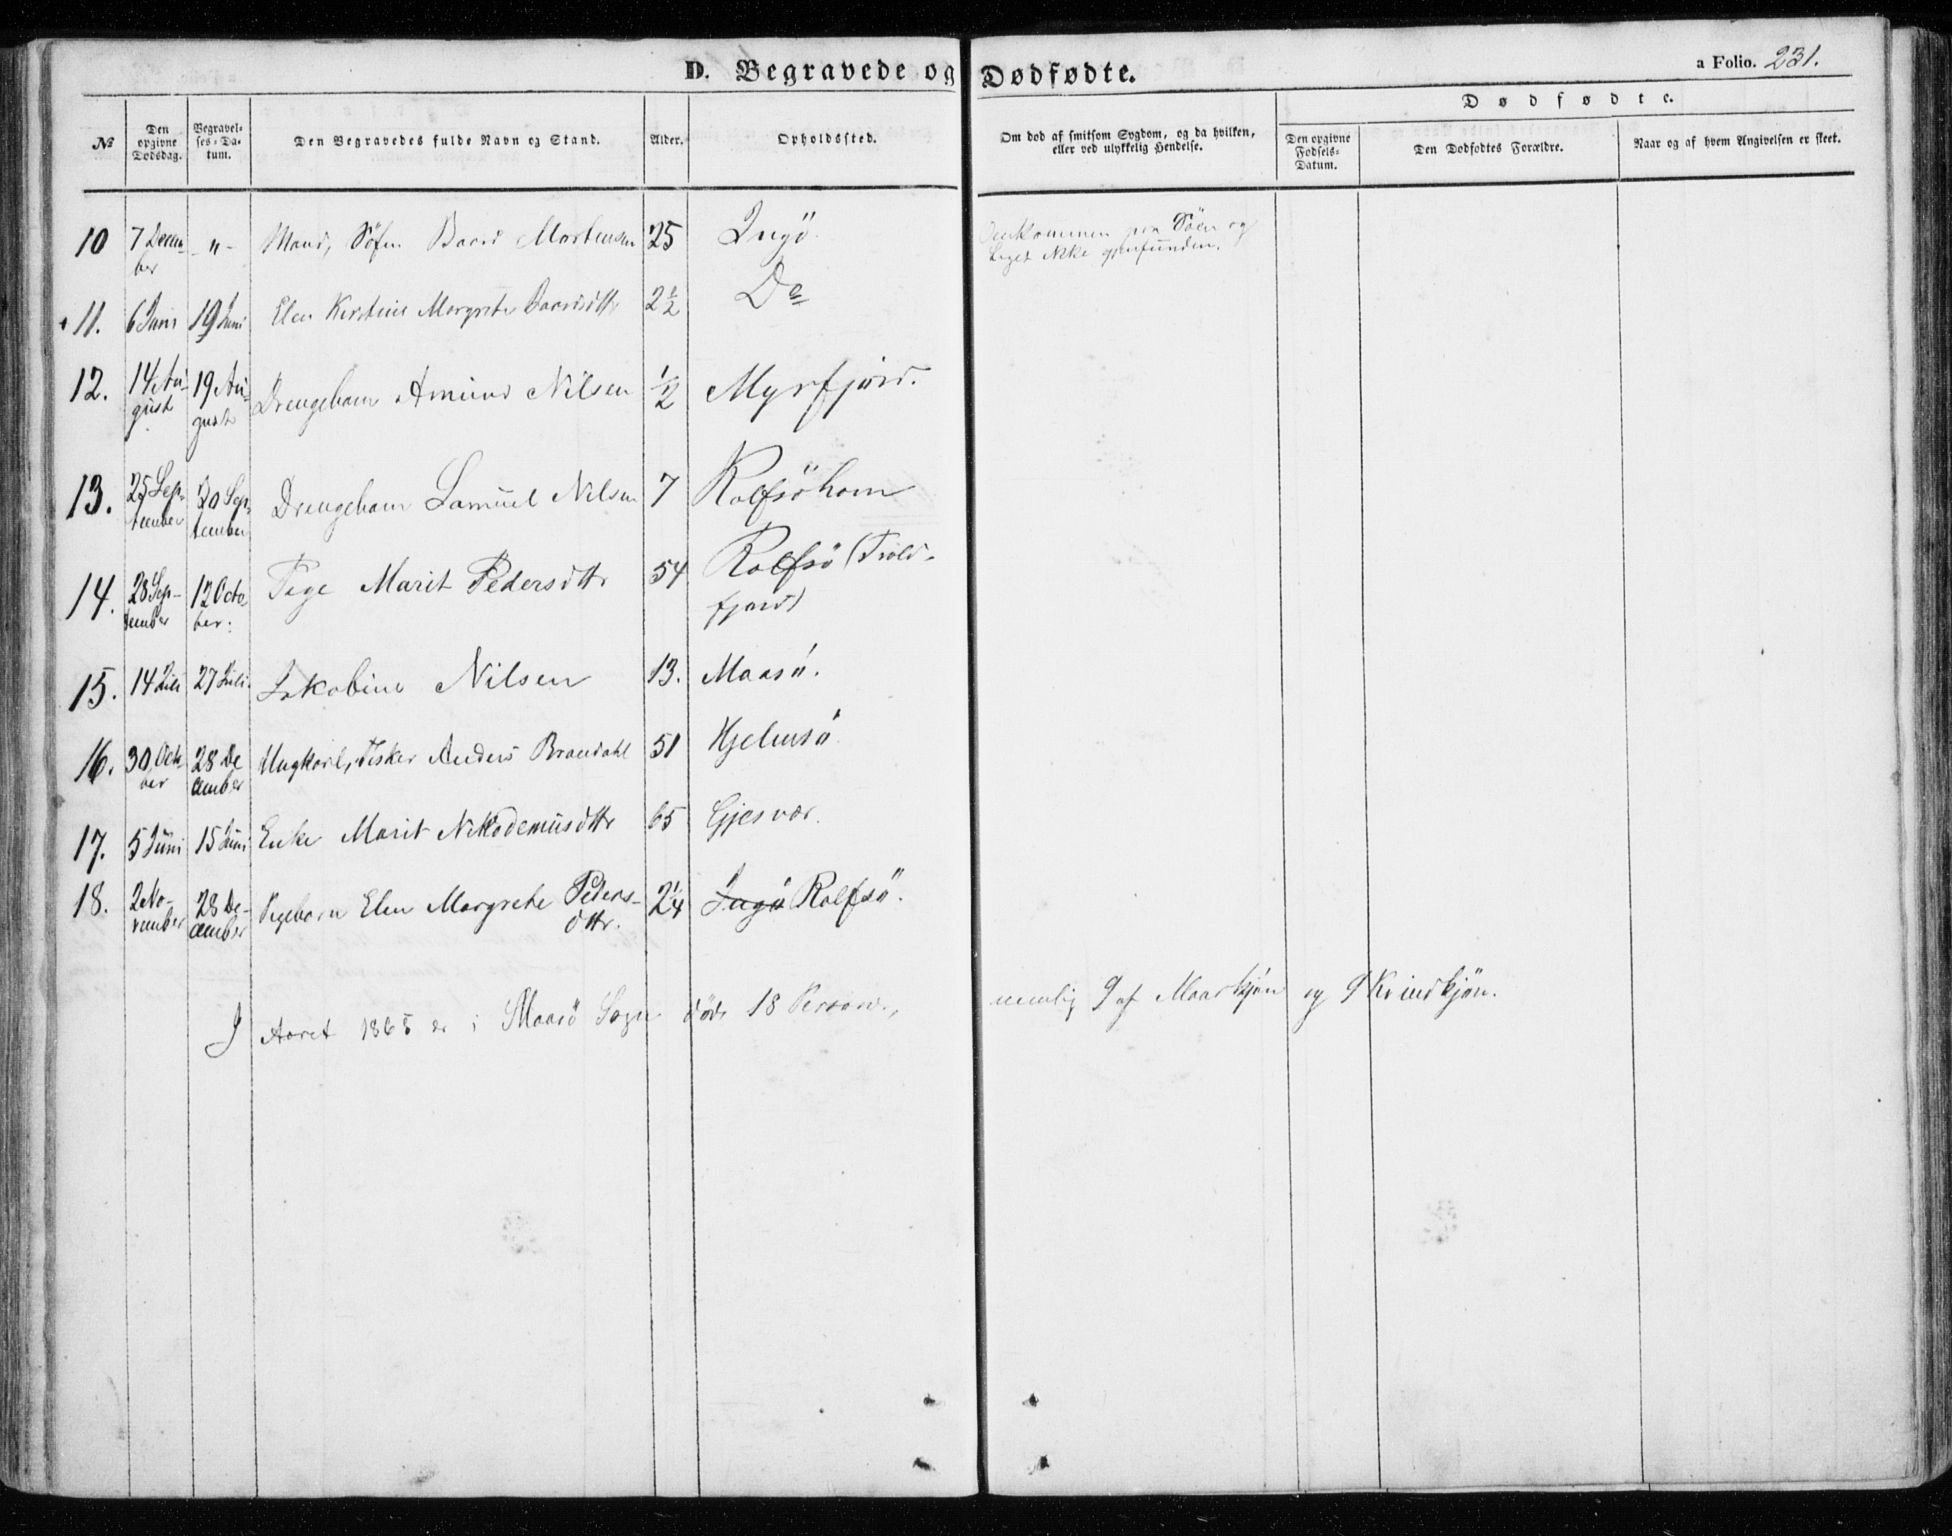 D. Begravede og Dødfødte.
a Folio. 231.
Dødfødte.
№
Den opgivne Dødsdag.
Begravelses-Datum.
Den Begravedes fulde Navn og Stand.
Alder.
Opholdssted.
Om død af smitsom Sygdom, og da hvilken,
eller ved ulykkelig Hendelse.
Den opgivne Fødsels-Datum.
Den Dødfødtes Forældre.
Naar og af hvem Angivelsen er skeet.
10 7 Decem- „ - Mand, Baard Mortensen 25 Ingö
ber
Omkommen paa Söen og
Liget ikke gjenfunden.
11. 6 Juni 19 Juni Elen Kirstine Margrete Baardsdttr 2½ Do
12. 14 Au- 19 Au- Drengebarn Amund Nilsen ½ Myrfjord.
gust gust
13. 25 Sep- 30 Sep- Drengebarn Samuel Nilsen 7 Rolfsöhavn
tember tember
14. 28 Sep- 12 Octo Pige Marit Pedersdttr 54 Rolfsö (Trold-
tember ber: fjord)
15. 14 Juli 27 Juli. Jakobine Nilsen 13. Maasö.
16. 30 Octo 28 De Ungkarl, Fisker Anders Brandahl 51 Hjelmsö
ber cember
17. 5 Juni 15 Juni Enke Marit Nikodemusdttr 65 Gjesvær.
18. 2 No- 28 De- Pigebarn Elen Margrete Peders- 2¼ Ingö Rolfsö.
vember cember dttr.
I Aaret 1865 er i Maasö Sogn döde 18 Personer, nemlig 9 af Mandkjön og 9 Kvindkjön.